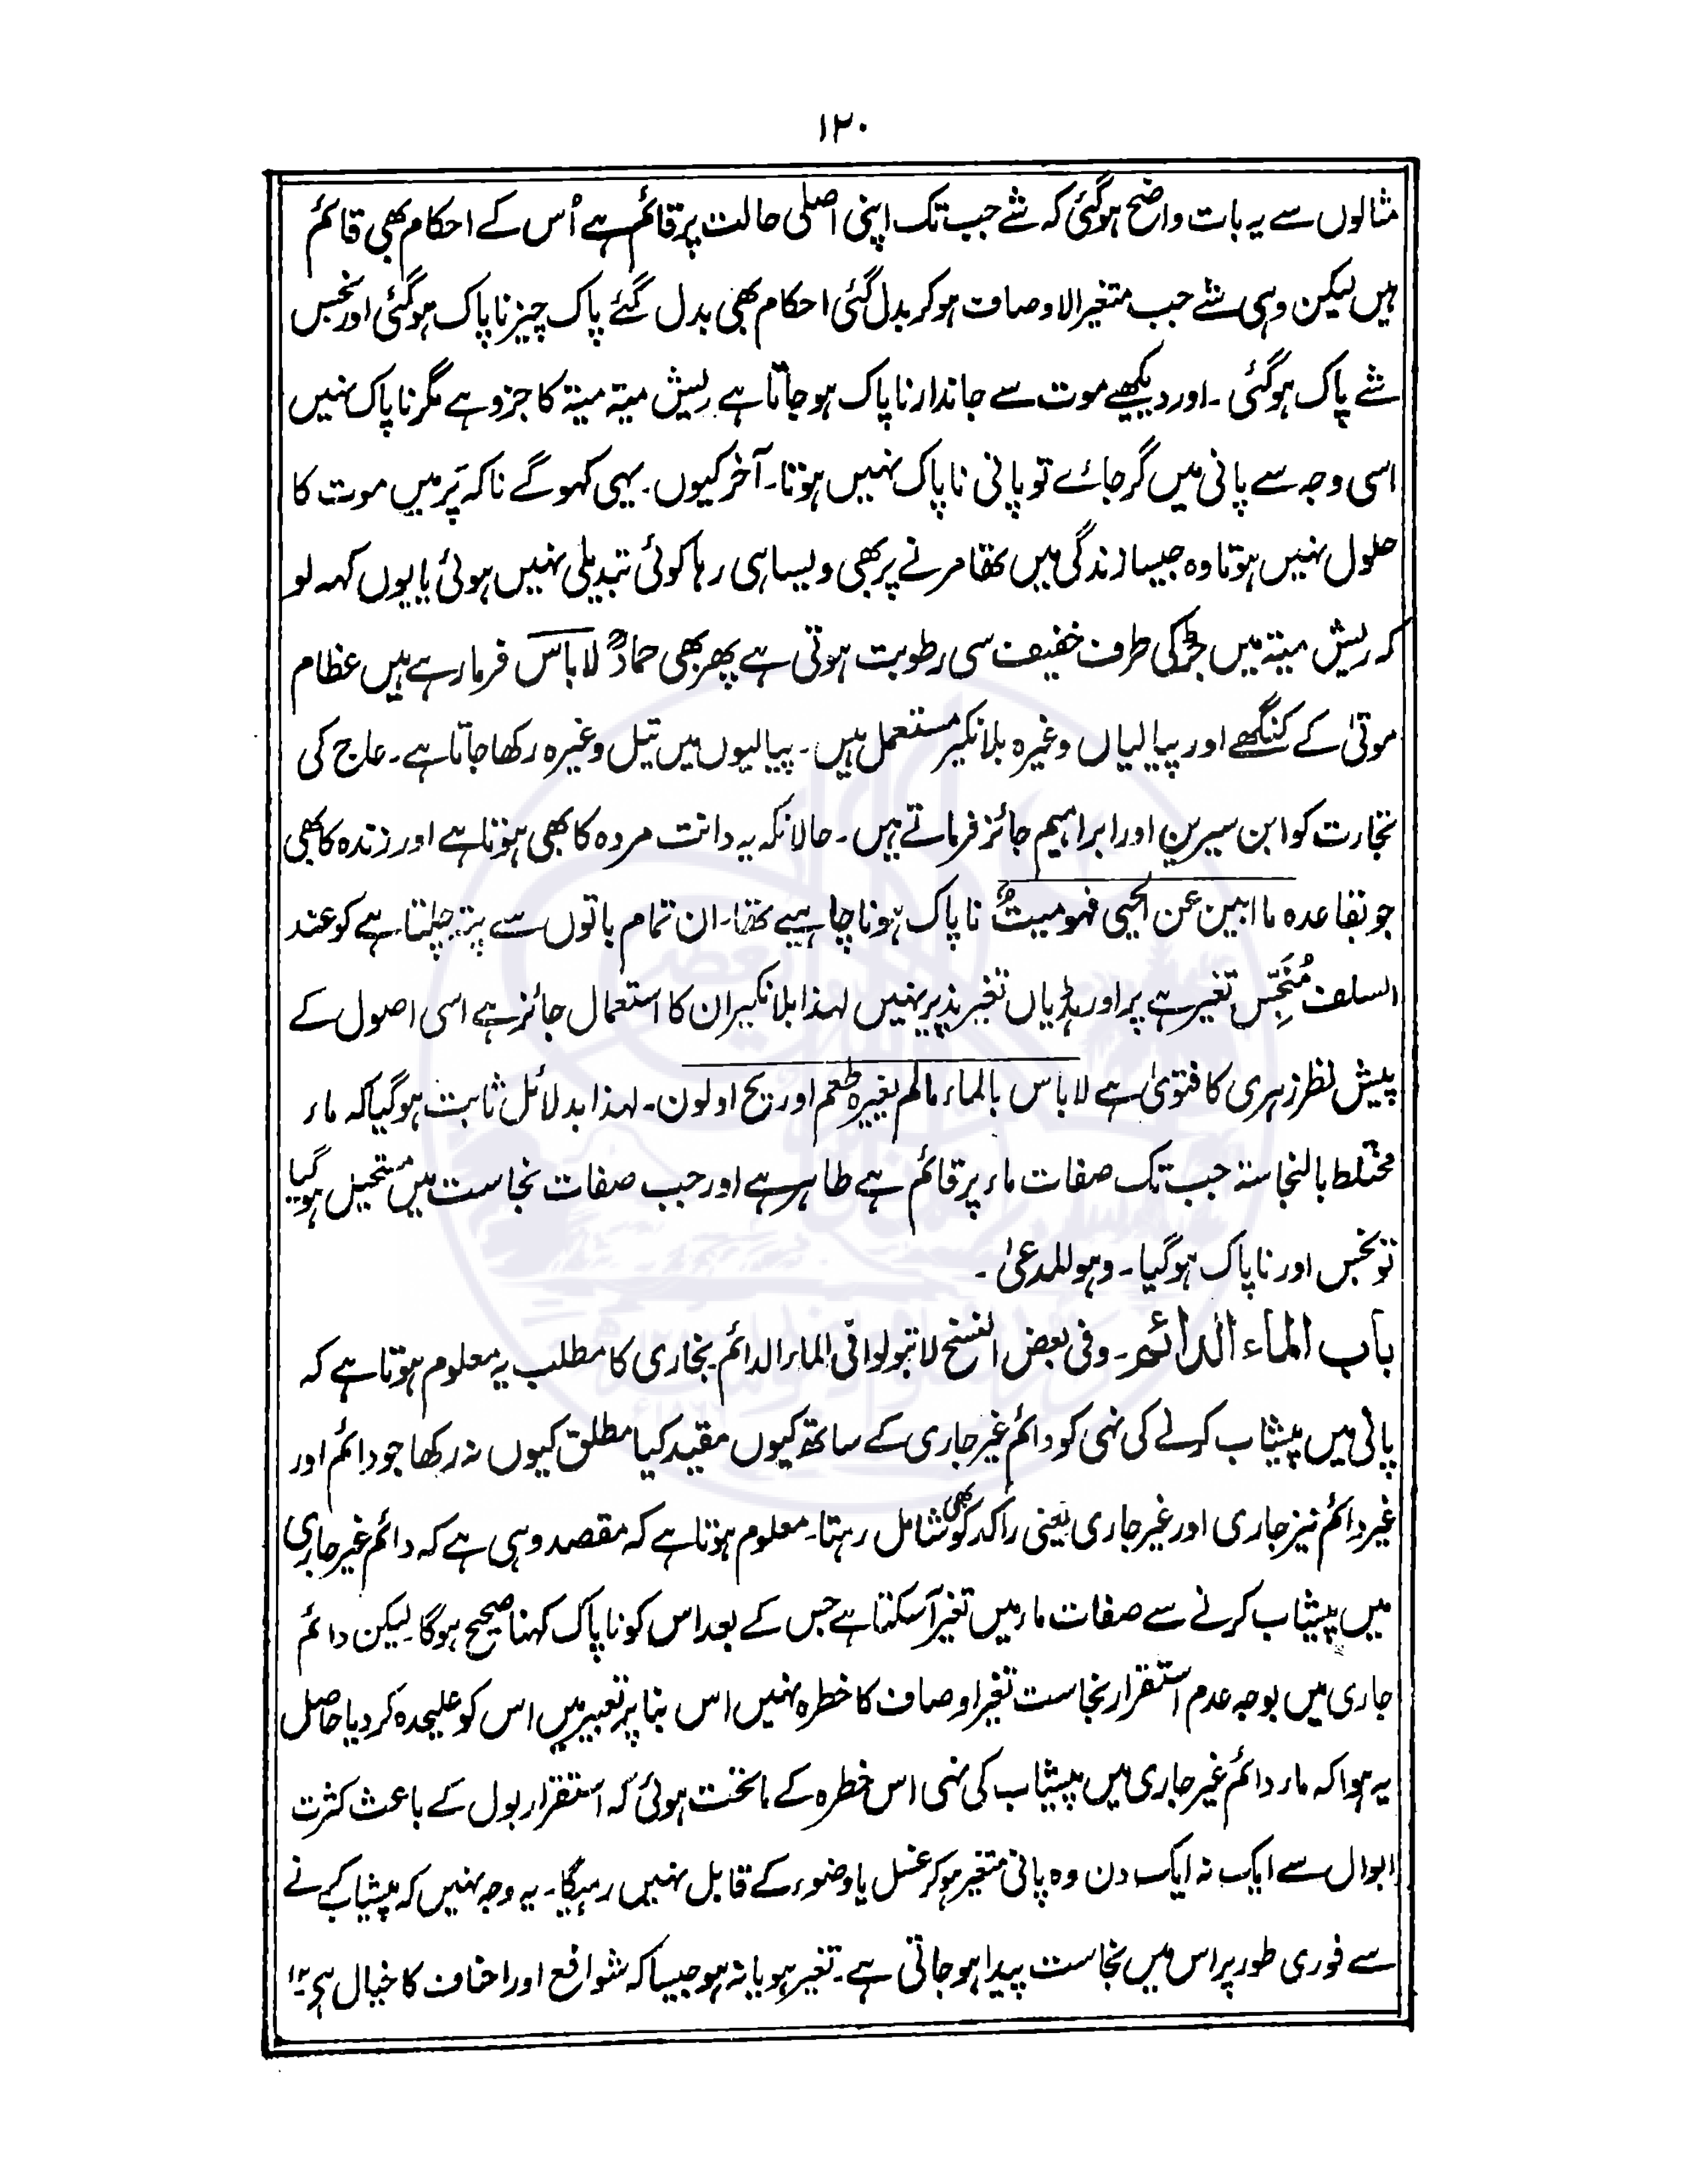 ۱۲۰
مثالوں سے یہ بات واضح ہوگئی کہ شے جب تک اپنی اصلی حالت پر قائم ہے اُس کے احکام بھی قائم
ہیں لیکن وہی شے جب متغیر الاوصاف ہوکر بدل گئی احکام بھی بدل گئے پاک چیز ناپاک ہوگئی اور نجس
شے پاک ہوگئی ۔ اور دیکھیے موت سے جاندار ناپاک ہوجاتا ہے ریش میتۃ میتۃ کا جزو ہے مگر ناپاک نہیں
اسی وجہ سے پانی میں گر جائے تو پانی ناپاک نہیں ہوتا۔ آخر کیوں۔ یہی کہو گے نا کہ پَر میں موت کا
حلول نہیں ہوتا وہ جیسا زندگی میں تھا مرنے پر بھی ویسا ہی رہا کوئی تبدیلی نہیں ہوئی یا یوں کہہ لو
کہ ریش میتۃ میں جڑ کی طرف خفیف سی رطوبت ہوتی ہے پھر بھی حمادؒ لاباس فرما رہے ہیں عظام
موتیٰ کے کنگھے اور پیالیاں وغیرہ بلانکیر مستعمل ہیں ۔ پیالیوں میں تیل وغیرہ رکھا جاتا ہے ۔ عاج کی
تجارت کو ابن سیرین اور ابراہیم جائز فرماتے ہیں ۔ حالانکہ یہ دانت مردہ کا بھی ہوتا ہے اور زندہ کا بھی
جو بقاعدہ ما ابین عن الحیی فہو میتٌ ناپاک ہونا چاہیے تھا۔ ان تمام باتوں سے پتہ چلتا ہے کو عند
السلف مُنَجِّس تغیر ہے پر اور ہڈیاں تغیر پذیر نہیں لہذا بلانکیر ان کا استعمال جائز ہے اسی اصول کے
پیش نظر زہری کا فتویٰ ہے لاباس بالماء مالم یغیرہ طعم اور ریح او لون ۔ لہذا بدلائل ثابت ہوگیا کہ ماء
مختلط بالنجاستۃ جب تک صفات ماء پر قائم ہے طاہر ہے اور جب صفات نجاست میں مستحیل ہوگیا
تو نجس اور ناپاک ہوگیا ۔ وہو للمدعیٰ ۔
باب الماء الدائم ۔ وفی بعض النسخ لاتبولوا فی الماء الدائم بخاری کا مطلب یہ معلوم ہوتا ہے کہ
پانی میں پیشاب کرنے کی نہی کو دائم غیر جاری کے ساتھ کیوں مقید کیا مطلق کیوں نہ رکھا جو دائم اور
غیر دائم نیز جاری اور غیر جاری یعنی راکد کو بھی شامل رہتا۔ معلوم ہوتا ہے کہ مقصد وہی ہے کہ دائم غیر جاری
میں پیشاب کرنے سے صفات ماء میں تغیر آسکتا ہے جس کے بعد اس کو ناپاک کہنا صحیح ہوگا لیکن دائم
جاری میں بوجہ عدم استقرار نجاست تغیر اوصاف کا خطرہ نہیں اس بنا پر تعبیر میں اس کو علیحدہ کردیا حاصل
یہ ہوا کہ ماء دائم غیر جاری میں پیشاب کی نہی اس خطرہ کے ماتحت ہوئی کہ استقرار بول کے باعث کثرت
ابوال سے ایک نہ ایک دن وہ پانی متغیر ہوکر غسل یا وضوء کے قابل نہیں رہیگا ۔ یہ وجہ نہیں کہ پیشاب کرنے
سے فوری طور پر اس میں نجاست پیدا ہوجاتی ہے ۔ تغیر ہو یا نہ ہو جیسا کہ شوافع اور احناف کا خیال ہے